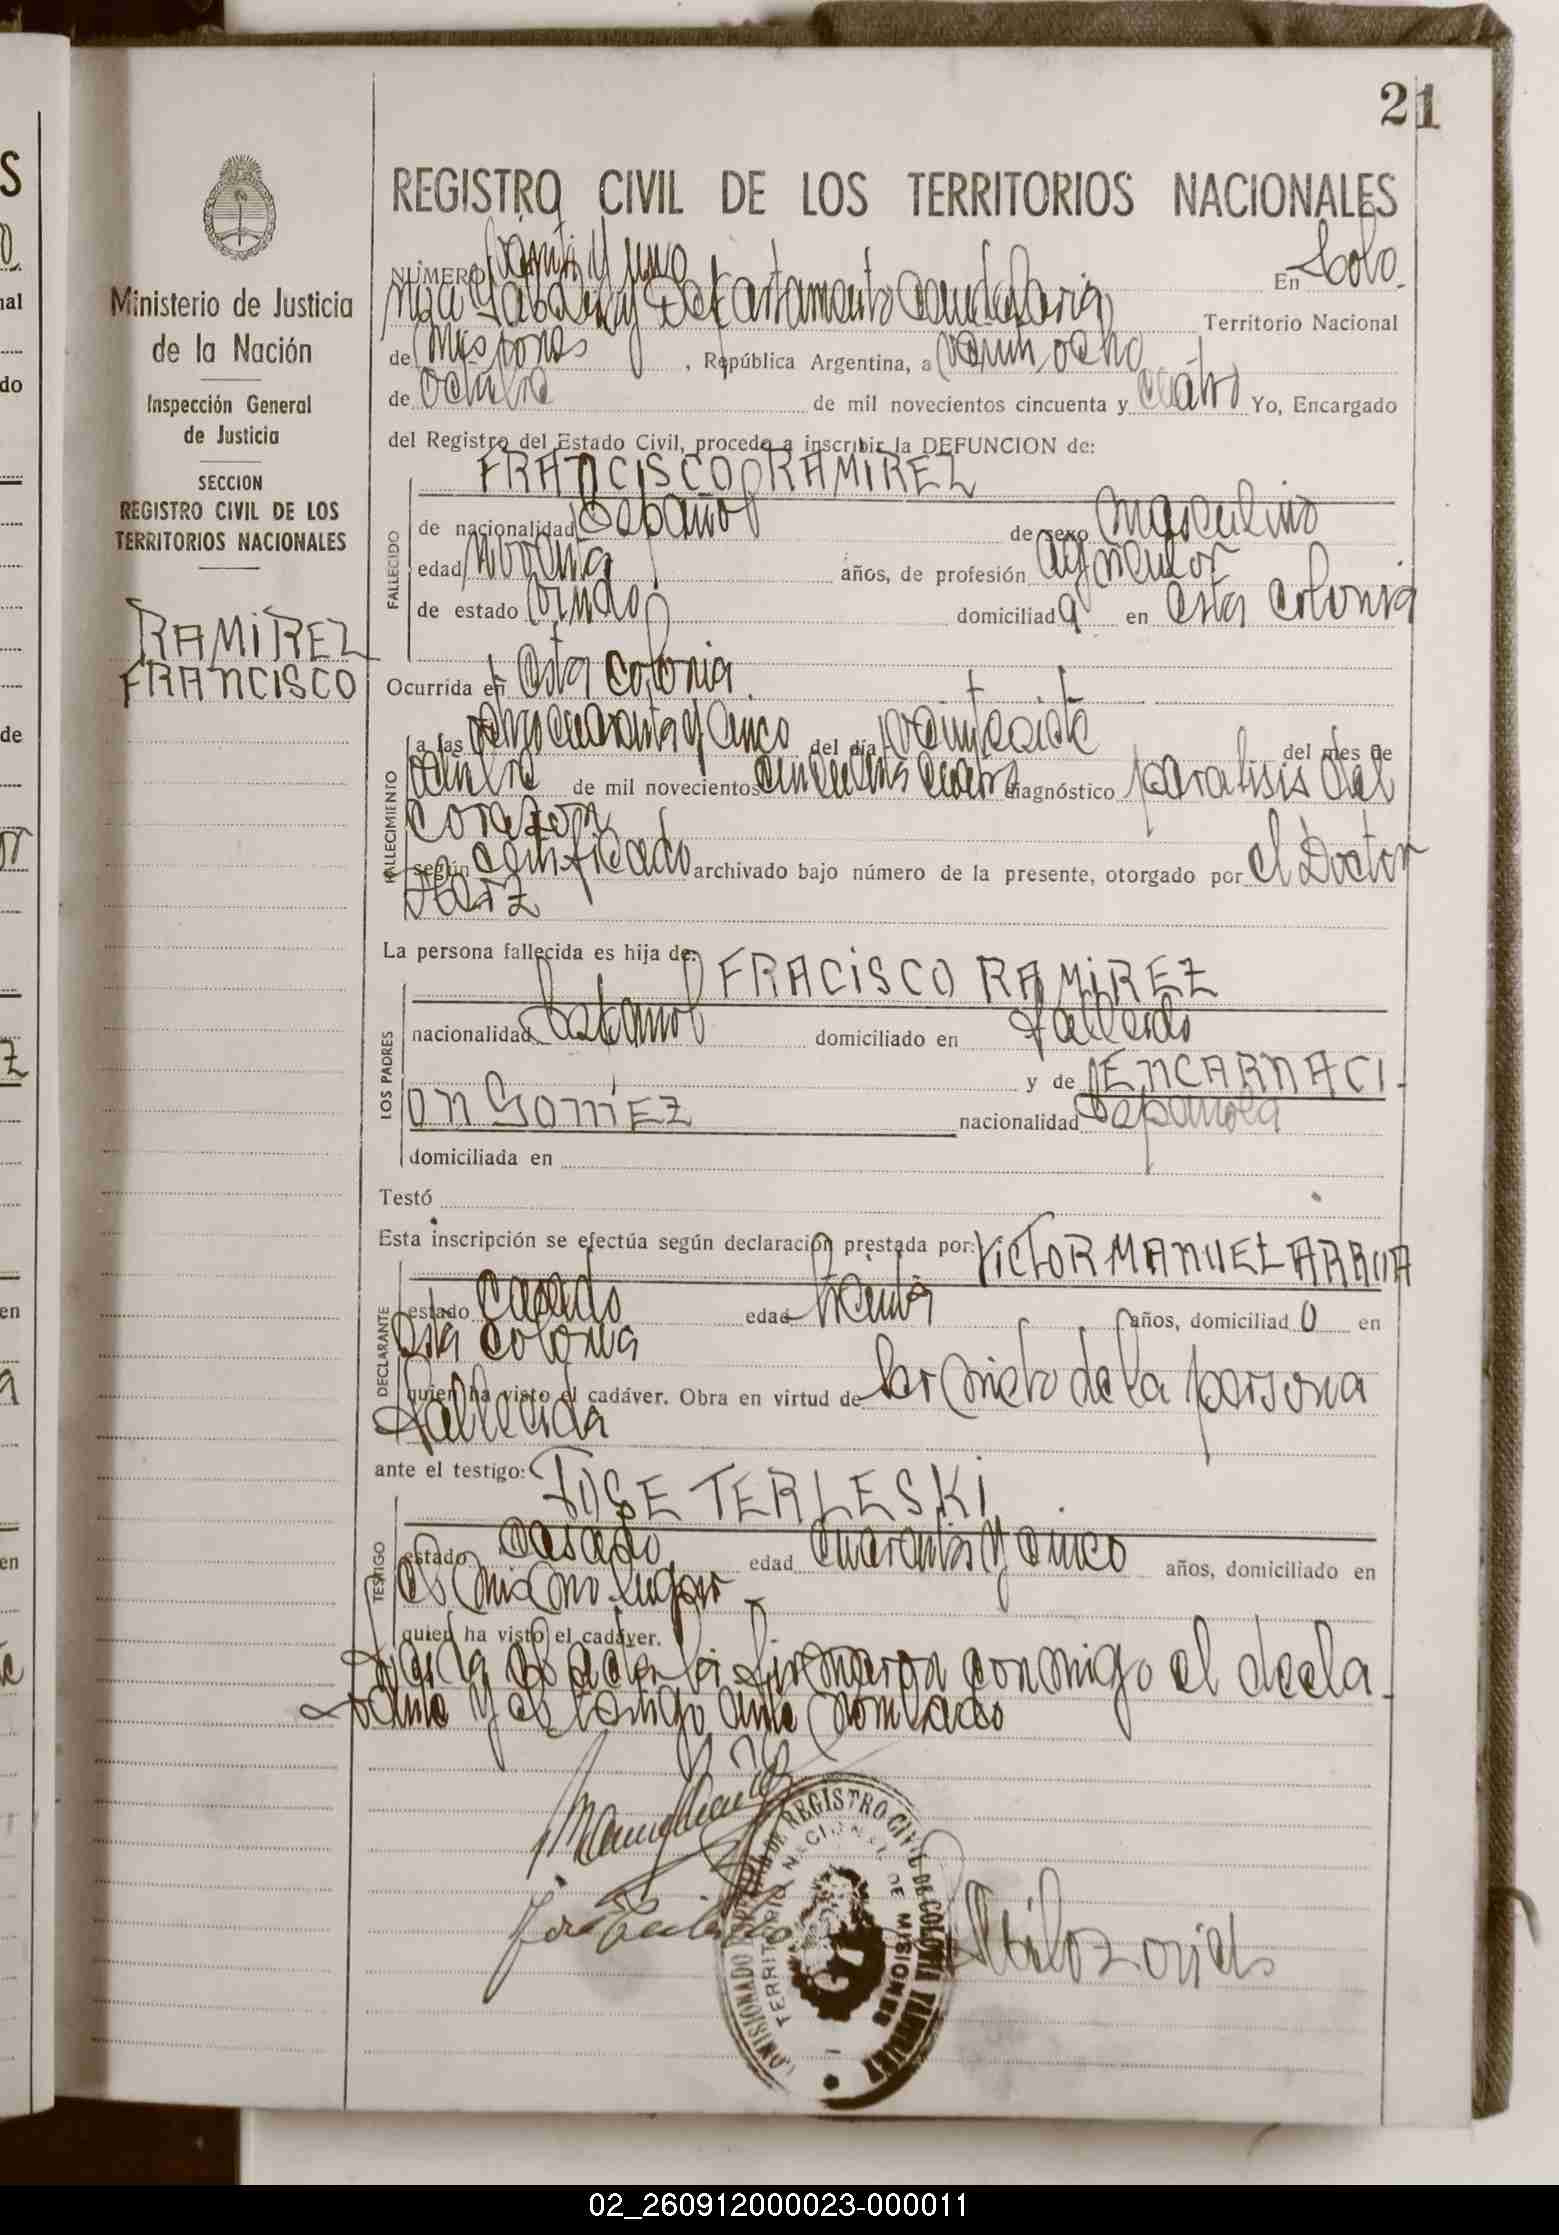 21
Ministerio de Justicia
de la Nación
Inspección General
de Justicia
SECCION
REGISTRO CIVIL DE LOS
TERRITORIOS NACIONALES
RAMIREZ
FRANCISCO
REGISTRO CIVIL DE LOS TERRITORIOS NACIONALES
NUMERO veinti y uno En Colo
nia Yabebiry Departamento Candelaria Territorio Nacional
de Misiones, República Argentina, a veinti ocho
de octubre de mil novecientos cincuenta y cuatro Yo, Encargado
del Registro del Estado Civil, procedo a inscribir la DEFUNCION de:
FRANCISCO RAMIREZ
FALLECIDO
de nacionalidad Español de sexo masculino
edad noventa años, de profesión agricultor
de estado viudo domiciliad a en esta colonia
Ocurrida en esta colonia
FALLECIMIENTO
a las cuarenta y cinco del día veintisiete del mes de
octubre de mil novecientos cincuenta cuatro diagnóstico paralisis del
corazon
según certificado archivado bajo número de la presente, otorgado por el Doctor
La persona fallecida es hija de: FRACISCO RAMIREZ
LOS PADRES
nacionalidad Español domiciliado en fallecido
y de ENCARNACI-
ON GOMEZ nacionalidad Española
domiciliada en
Testó
Esta inscripción se efectúa según declaración prestada por: VICTOR MANUEL ARRUA
DECLARANTE
estado casado edad treinta años, domiciliad o en
esta colonia
quien ha visto el cadáver. Obra en virtud de ser nieto de la persona
fallecida
ante el testigo: JOSE TERLESKI
TESTIGO
estado casado edad cuarenta y cinco años, domiciliado en
el mismo lugar
quien ha visto el cadáver.
el acta la firmaron conmigo el decla-
rante y el testigo ante nombrado
COMISIONADO DE REGISTRO CIVIL DE COLONIA
TERRITORIO NACIONAL DE MISIONES
02_260912000023-000011